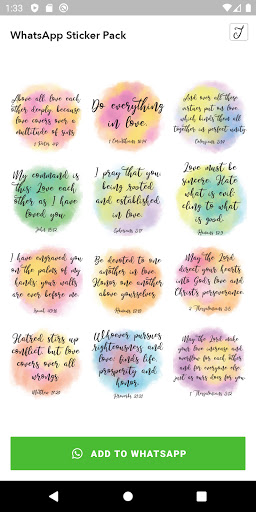 1:33
WhatsApp Sticker Pack
Above all, love each
other deeply, because
love covers over a
multitude of sins
1 Peter 4:8
Do everything
in love.
1 Corinthians 16:14
And over all these
virtues put on love,
which binds them all
together in perfect unity.
Colossians 3:14
My command is
this: Love each
other as I have
loved you.
John 15:12
I pray that you,
being rooted
and established
in love.
Ephesians 3:17
Love must be
sincere. Hate
what is evil;
cling to what
is good.
Romans 12:9
I have engraved you
on the palms of my
hands; your walls
are ever before me.
Isaiah 49:16
Be devoted to one
another in love.
Honor one another
above yourselves.
Romans 12:10
May the Lord
direct your hearts
into God's love
and Christ's
perseverance.
2 Thessalonians 3:5
Hatred stirs up
conflict, but love
covers over all
wrongs.
Whoever pursues
righteousness and
love; finds life,
prosperity and
honor.
Proverbs 21:21
May the Lord make
your love increase and
overflow for each other
and for everyone else
just as ours does for you.
1 Thessalonians 3:12
ADD TO WHATSAPP